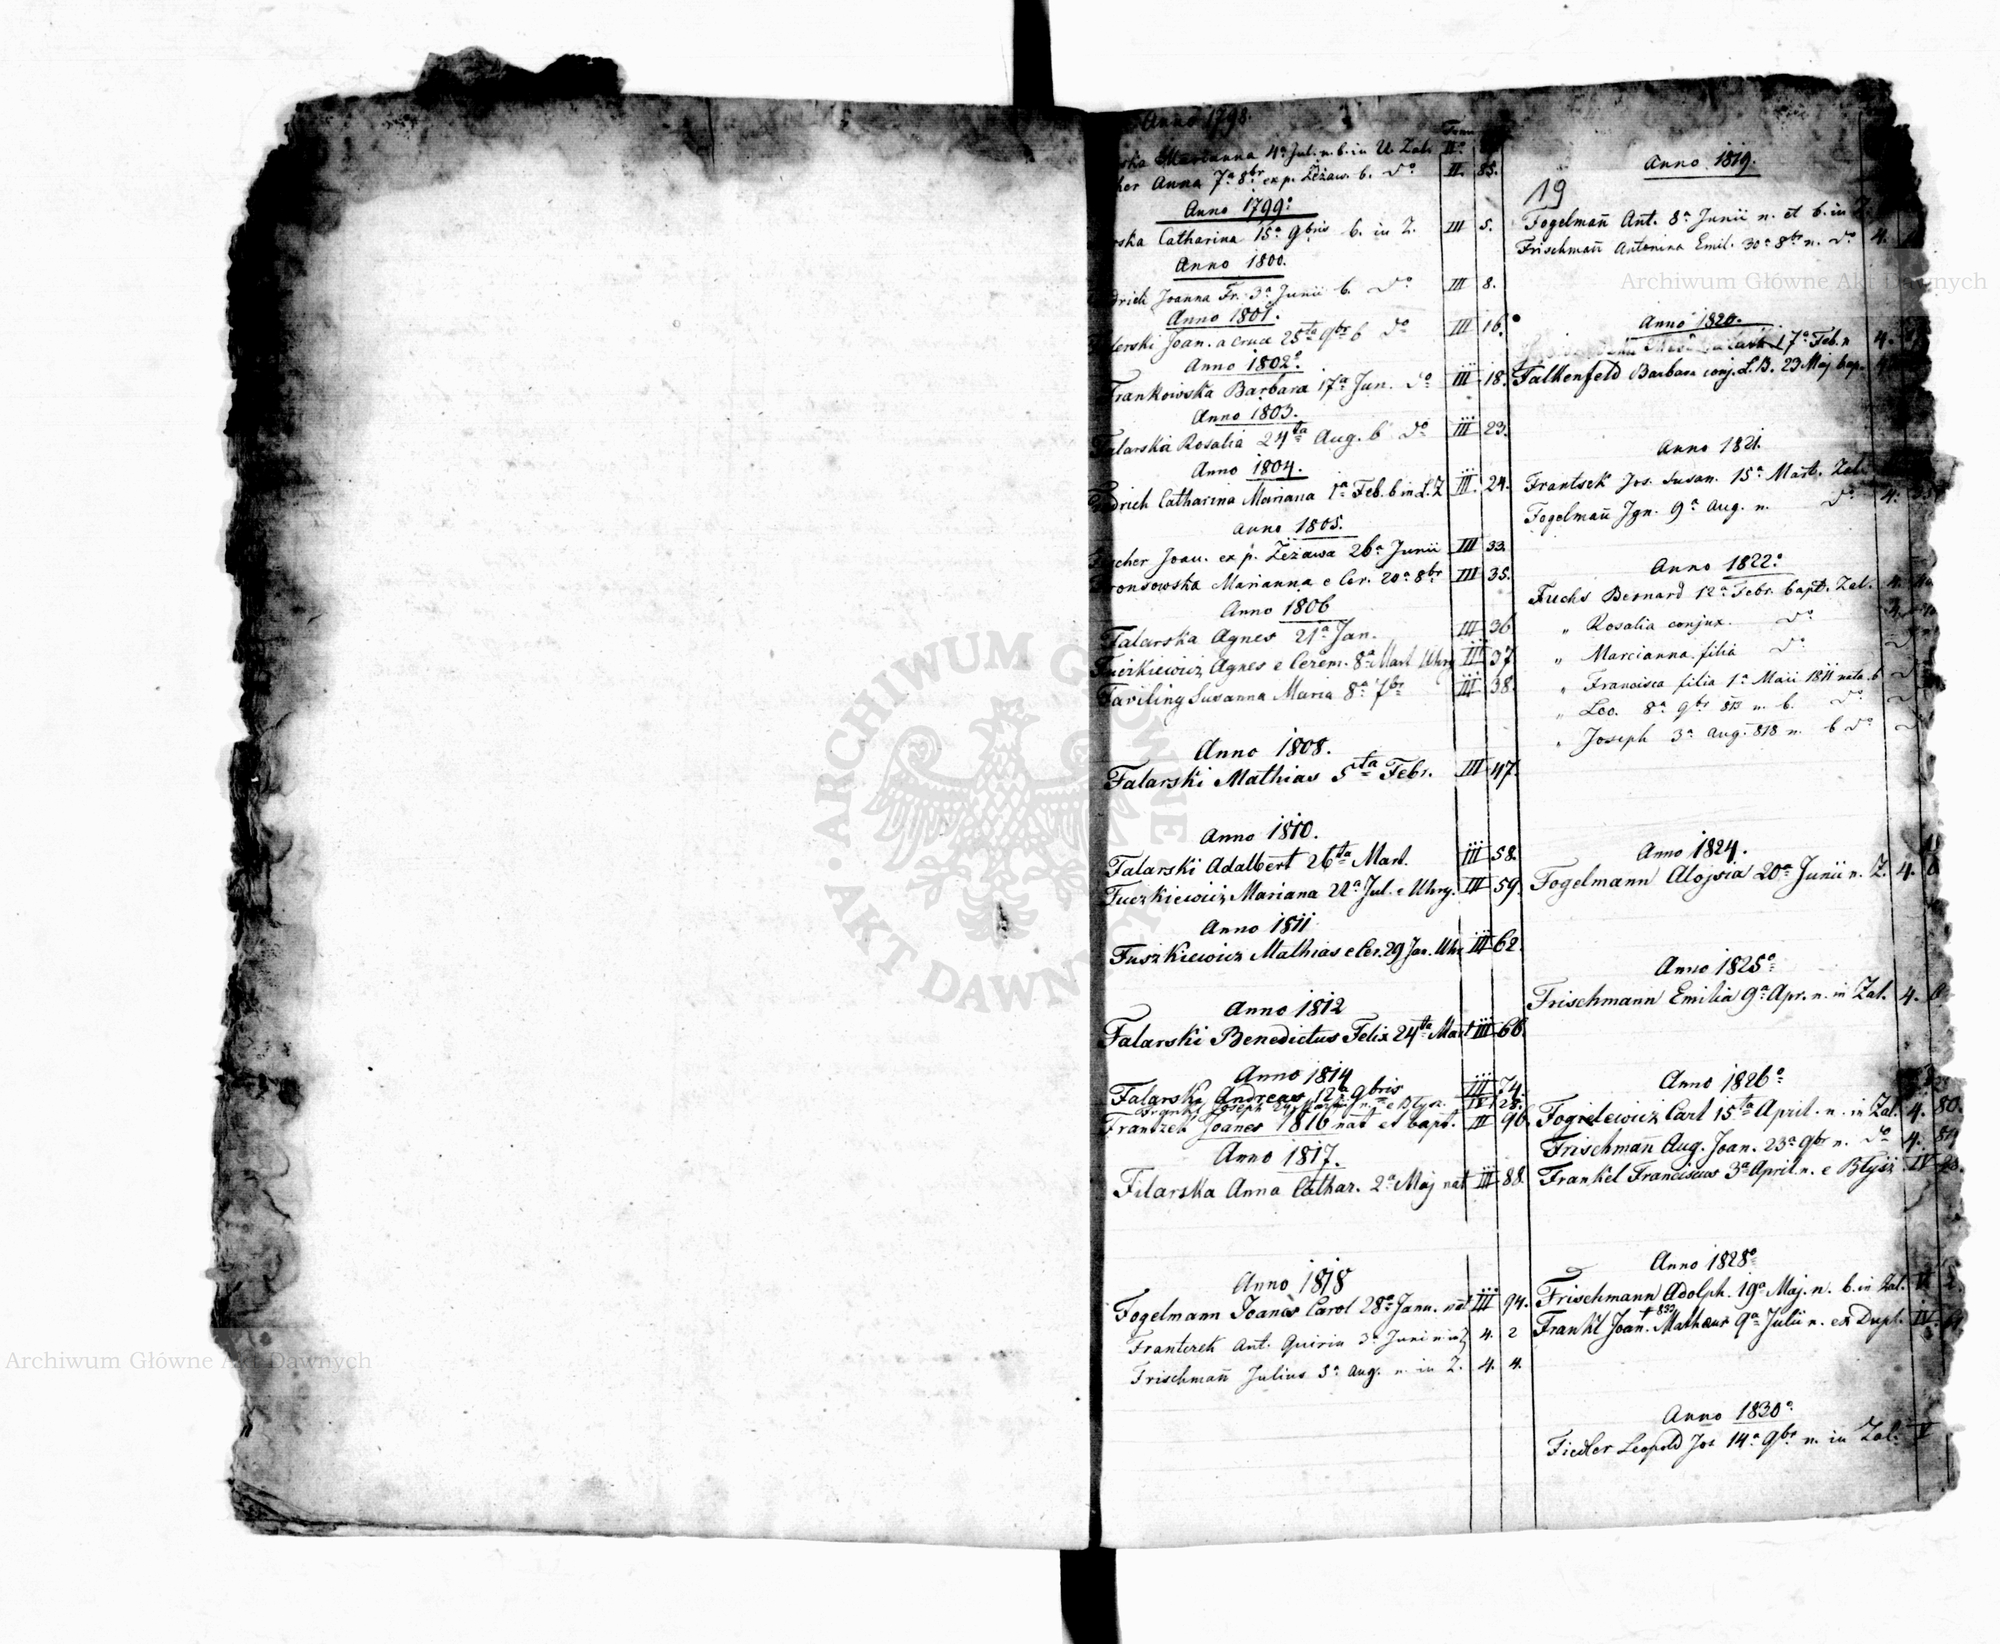 Anno 1798.
Marianna 4ª Jul. n. b. in U. Zal. II
Anna 7ª 8br ex p. Zeżaw. b. do II. 85.
Anno 1799º
Catharina 15ª 9bris b. in Z. III 5.
Anno 1800.
Joanna Fr. 3ª Junii b. do III 8.
Anno 1801.
Joan. a Cruce 25ta 9br b do III 16.
Anno 1802º
Frankowska Barbara 17ª Jun. do III 18.
Anno 1803.
Falarska Rosalia 24ta Aug. b do III 23.
Anno 1804.
Catharina Mariana 1ª Feb. b in L. Z III. 24.
Anno 1805.
Joan. ex p. Zeżawa 26ª Junii III 33.
Marianna e Cer. 20ª 8br III 35.
Anno 1806
Falarska Agnes 21ª Jan. III 36
Fuczkiewicz Agnes e Cerem. 8ª Mart Uhry III 37.
Fariling Susanna Maria 8ª 7br III 38.
Anno 1808.
Falarski Mathias 5ta Febr. III 47.
Anno 1810.
Falarski Adalbert 26ta Mart. III 58.
Fuczkiewicz Mariana 22ª Jul. e Uhry. III 59.
Anno 1811
Fuszkiewicz Mathias e Cer. 29 Jan. Uhr III 62.
Anno 1812
Falarski Benedictus Felix 24ta Mart III 66.
Anno 1814
Falarski Andreas 12ª 9bris III 74.
Frankl Joseph n. e Błysz. IV 28.
Frantzek Joanes 1816 nat et bapt. III 96.
Anno 1817.
Filarska Anna Cathar. 2ª Maj nat III 88.
Anno 1818
Fogelmann Joanes Carol 28ª Janu. nat III 94.
Franterek Ant. Quirin 3ª Juni n. in Z 4. 2
Frischmañ Julius 5ª Aug. n. in Z. 4. 4.
Anno 1819.
19
Fogelmañ Ant. 8ª Junii n. et b. in Z.
Frischmañ Antonina Emil. 30ª 8br n. do 4.
Anno 1820.
17ª Feb. n 4.
Falkenfeld Barbara conj. L. B. 23 Maj bap.
Anno 1821.
Frantsek Jos. Susan. 15ª Mart. Zal.
Fogelmañ Ign. 9ª Aug. n. do 4.
Anno 1822º
Fuchs Bernard 12ª Febr. bapt. Zal. 4.
" Rosalia conjux. do 4.
" Marcianna filia do
" Francisca filia 1ª Maii 1811 nata b do
" Leo. 8ª 9br 813 n. b. do
" Joseph 3ª Aug. 818 n. b do
Anno 1824.
Fogelmann Alojsia 20ª Junii n. Z. 4.
Anno 1825º
Frischmann Emilia 9ª Apr. n. in Zal. 4.
Anno 1826º
Fogielewicz Carl 15ta April. n. in Zal. 4. 80.
Frischmañ Aug. Joan. 23ª 9br n. do 4.
Frankel Franciscus 3ª April. n. e Błysz. IV
Anno 1828º
Frischmann Adolph. 19ª Maj. n. b. in Zal.
Frankl Joan. + 832 Matheus 9ª Julii n. ex Dupl. IV.
Anno 1830º
Fiedler Leopold Jos 14ª 9br n. in Zal. V
Archiwum Główne Akt Dawnych
Archiwum Główne Akt Dawnych
ARCHIWUM GŁÓWNE • AKT DAWNYCH •